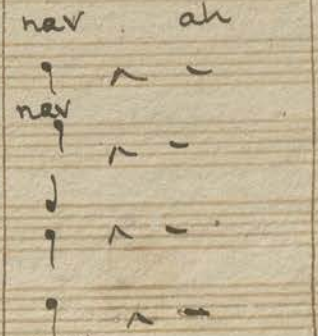 nav ah
nav